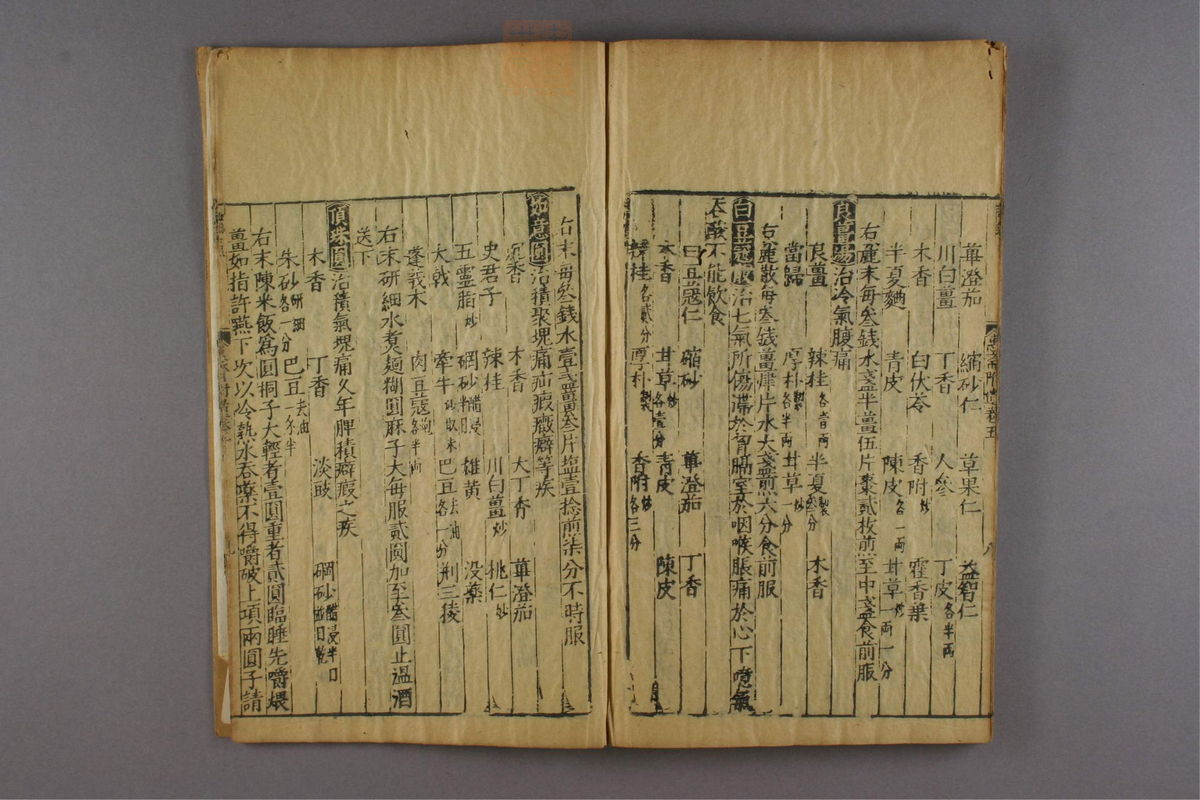 蓽澄茄 縮砂仁 草果仁 益智仁
川白薑 丁香 人參 丁皮各半兩
木香 白伏苓 香附炒 藿香葉
半夏麯 青皮 陳皮各一兩 甘草炒一兩一分
右麄末每叁錢水盞半薑伍片棗貳枚煎至中盞食前服
良薑湯治冷氣腹痛
良薑 辣桂各壹兩 半夏製叁分 木香
當歸 厚朴製各半兩 甘草炒一分
右麄散每叁錢薑肆片水大盞煎六分食前服
白豆蔻散治七氣所傷滯於胷膈窒於咽喉脹痛於心下噫氣
吞酸不能飲食
白豆蔻仁 縮砂 蓽澄茄 丁香
木香 甘草炒各壹分 青皮 陳皮
辣桂各貳分 厚朴製 香附炒各三分
右末每叁錢水壹盞薑叁片塩壹捻煎柒分不時服
如意圓治積聚塊痛疝瘕癥癖等疾
沉香 木香 大丁香 蓽澄茄
史君子 辣桂 川白薑炒 桃仁炒
五靈脂炒 碙砂醋浸 雄黃 没藥
大戟 牽牛炒取末 巴豆去油各一分 荆三稜
蓬莪术 肉豆蔻炮各半兩
右末研細水煮麵糊圓麻子大每服貳圓加至叁圓止温酒
送下
傎珠圓治積氣塊痛久年脾積癖瘕之疾
木香 丁香 淡豉 碙砂醋浸半日
朱砂研細各一分 巴豆去油一分半
右末陳米飯爲圓桐子大輕者壹圓重者貳圓臨睡先嚼煨
薑如指許嚥下次以冷熱水吞藥不得嚼破上項兩圓子請